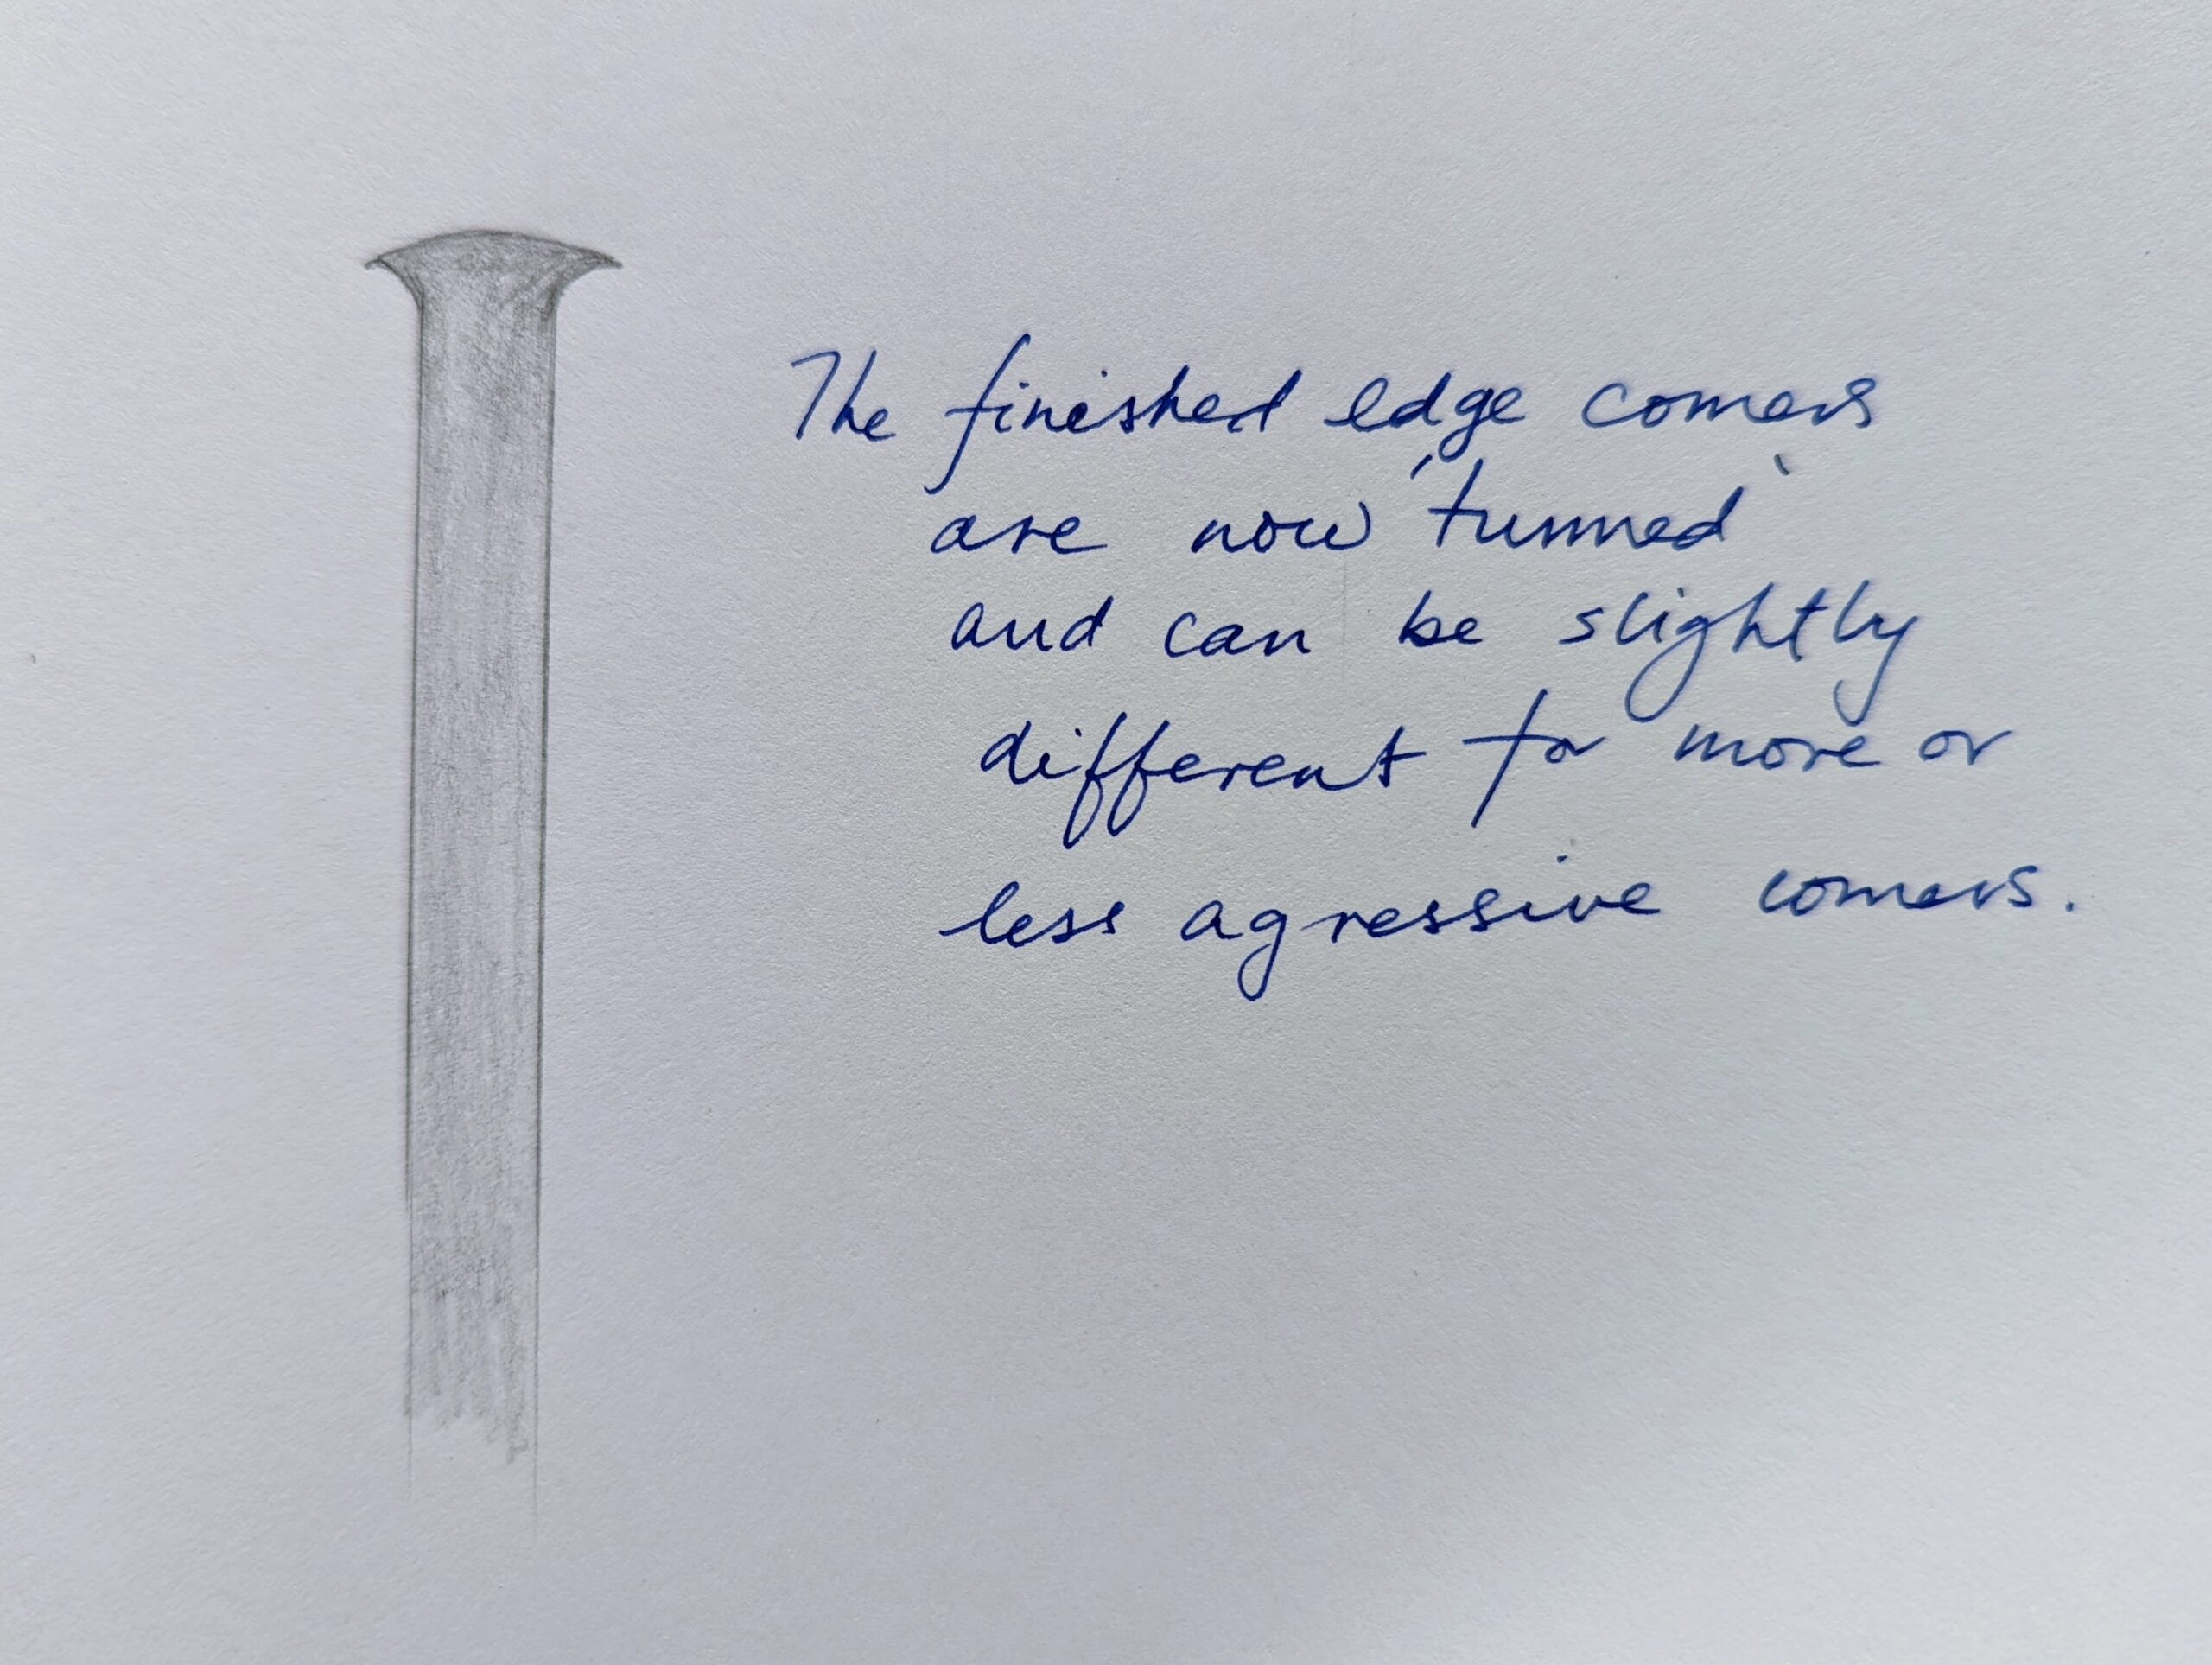 The finished edge corners
are now 'turned'
and can be slightly
different for more or
less agressive corners.